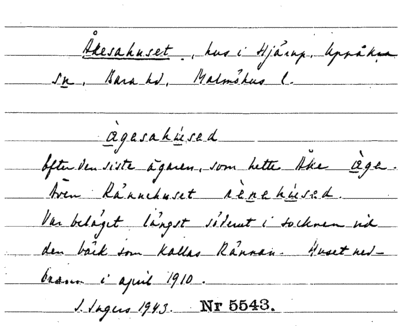 Åkesahuset, hus i Hjärup, Uppåkra
sn, Bara hd, Malmöhus l.
àgesahúsed
Efter den siste ägaren, som hette Åke àge.
Även Rännehuset rènehúsed.
Var beläget längst söderut i socknen vid
den bäck som kallas Rännan. Huset ned-
brann i april 1910.
I. Ingers 1943. Nr 5543.